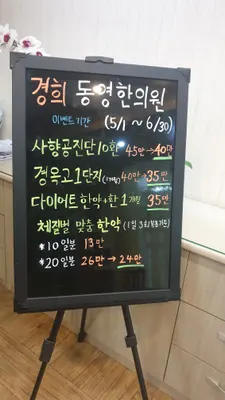 경희 동영한의원
이벤트기간 (5/1 ~ 6/30)
사향공진단10환 45만→40만
경옥고1단지 40만→35만
다이어트한약 1개월 35만
체질별 맞춤 한약
*10일분 13만
*20일분 26만→24만